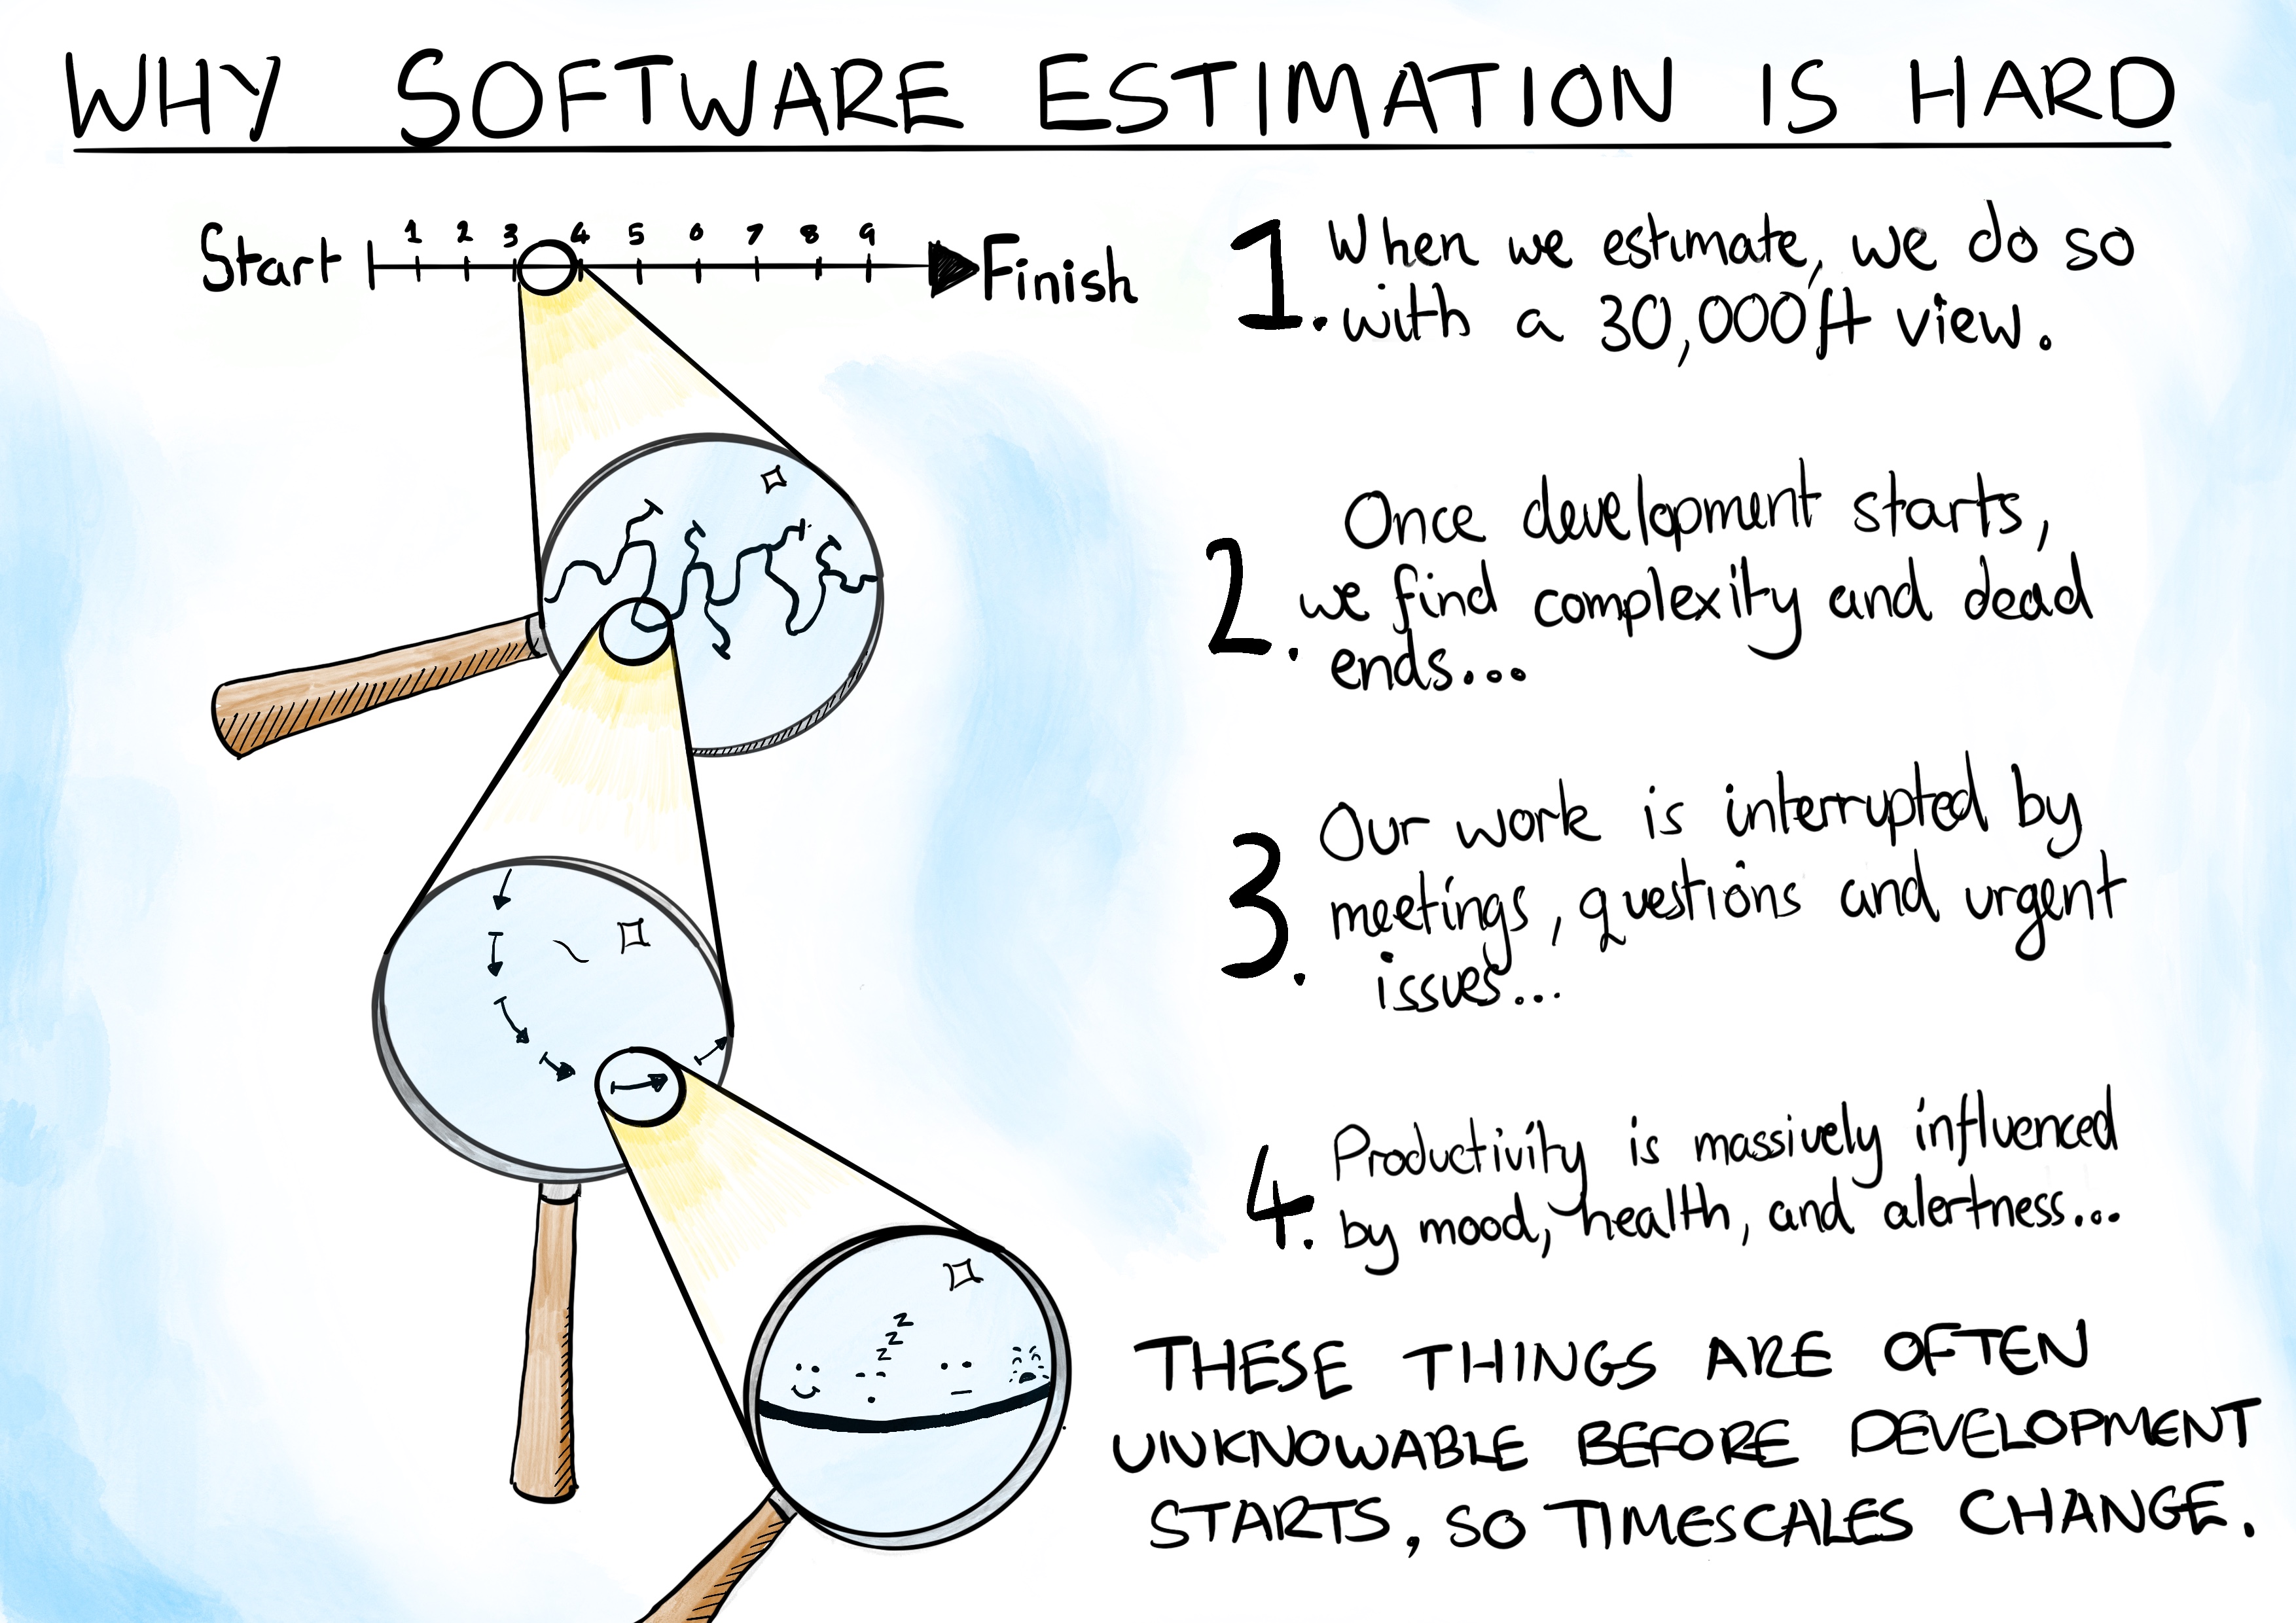 WHY SOFTWARE ESTIMATION IS HARD
Start 1 2 3 4 5 6 7 8 9 Finish
1. When we estimate, we do so
with a 30,000ft view.
2. Once development starts,
we find complexity and dead
ends...
3. Our work is interrupted by
meetings, questions and urgent
issues...
4. Productivity is massively influenced
by mood, health, and alertness...
z
z
z
THESE THINGS ARE OFTEN
UNKNOWABLE BEFORE DEVELOPMENT
STARTS, SO TIMESCALES CHANGE.